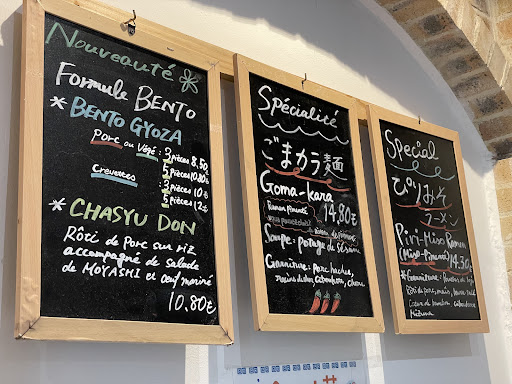 Nouveauté
Formule BENTO
* BENTO GYOZA
Porc ou Végé : 3 pièces 8.50
5 pièces 10.80€
Crevettes : 3 pièces 10€
5 pièces 12€
* CHASYU DON
Rôti de porc sur riz
accompagné de salade
de MOYASHI et oeuf mariné
10.80€
Spécialité
ごまカラ麺
Goma-kara
Ramen pimenté
14.80€
Soupe: potage de sésame
Garniture: porc haché,
Special
ぴりみそ
ラーメン
Piri-Miso Ramen
(Miso-Pimenté) 14.30€
* Garniture:
Rôti de porc, maïs,